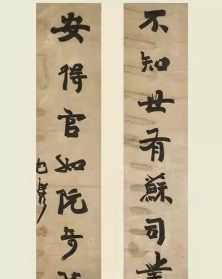 不知世有蘇司業
安得官如阮步